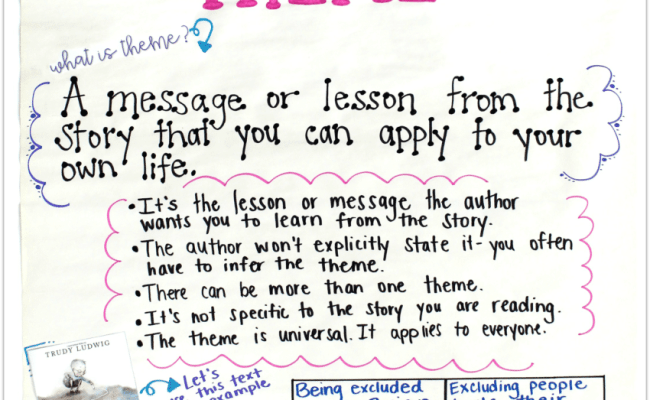 THEME
what is theme?
A message or lesson from the
story that you can apply to your
own life.
• It's the lesson or message the author
wants you to learn from the story.
• The author won't explicitly state it- you often
have to infer the theme.
• There can be more than one theme.
• It's not specific to the story you are reading.
• The theme is universal. It applies to everyone.
TRUDY LUDWIG
Let's
this text
example
Being excluded
Excluding people
their